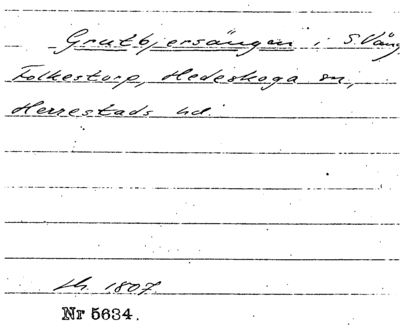 Grutbjersängen i S. Väng
Folkestorp, Hedeskoga sn,
Herrestads hd.
sk. 1807.
Nr 5634.